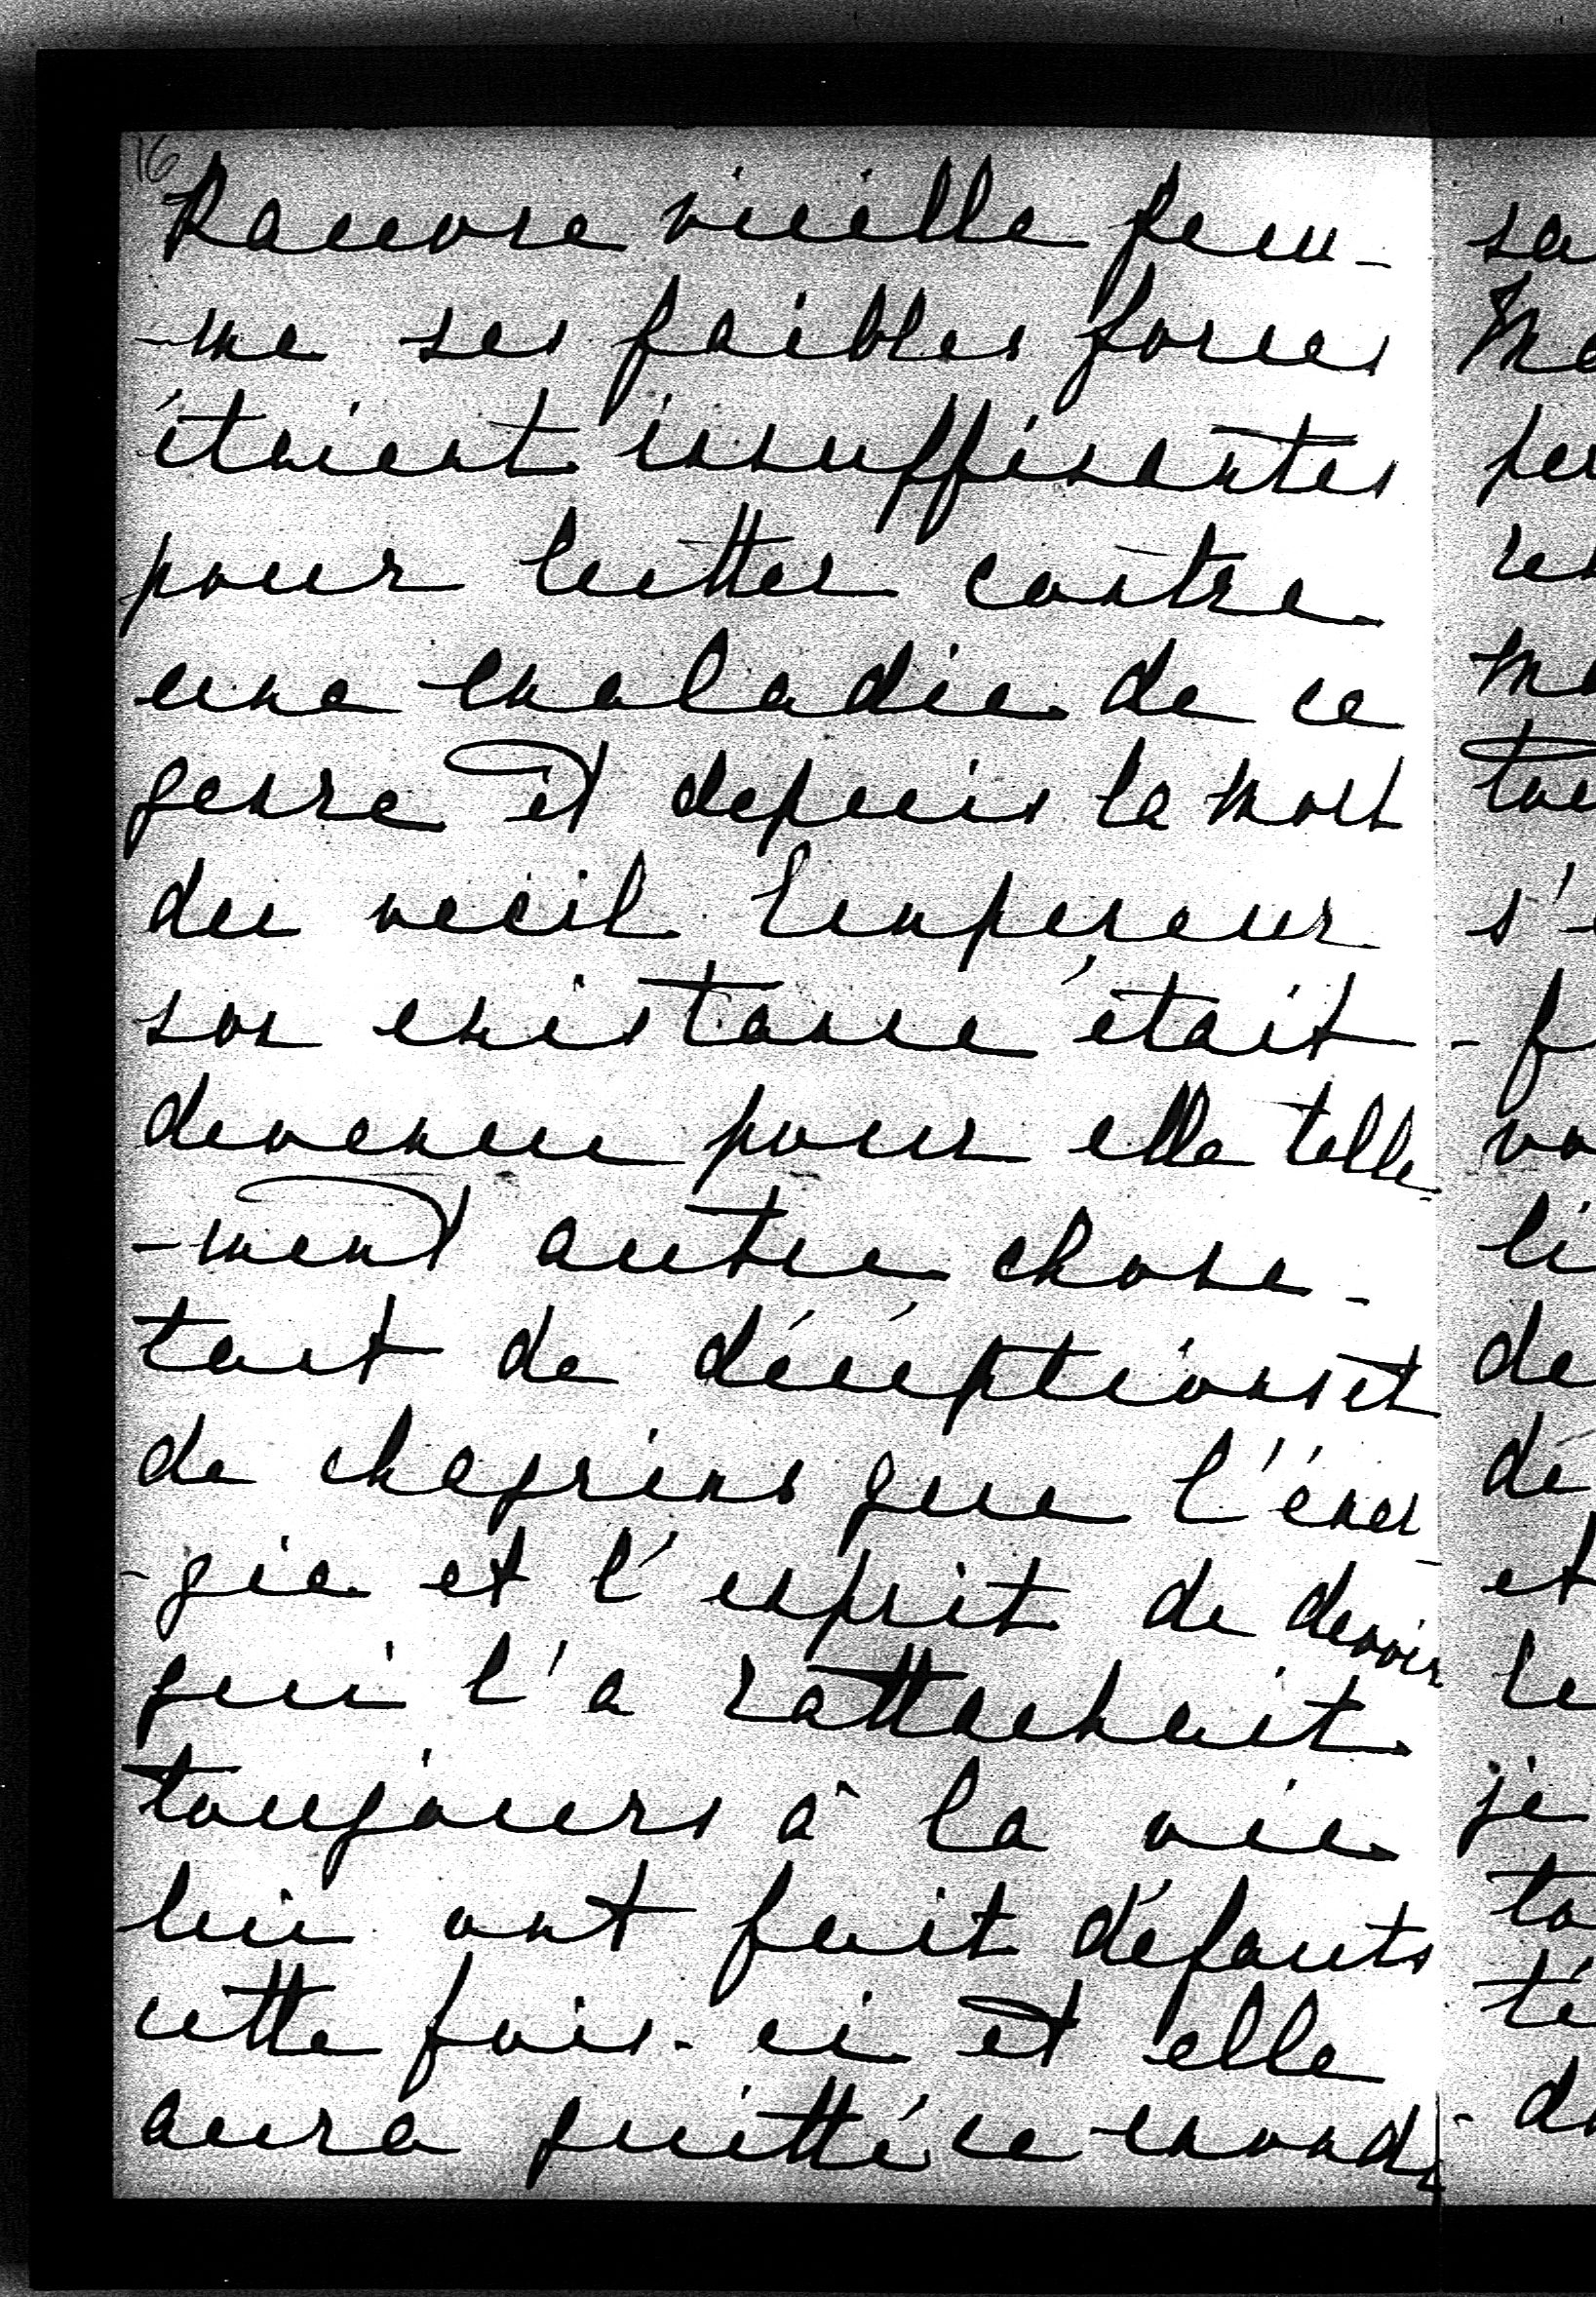 16
Pauvre vieille fem-
-me ses faibles forces
étaient insuffisantes
pour lutter contre
une maladie de ce
genre et depuis la mort
du vieil Empereur
son existance était
devenue pour elle telle-
-ment autre chose -
tant de déceptions et
de chagrins que l'éner-
-gie et l'esprit de devoir
qui l'a rattachait
toujours à la vie
lui ont fait défauts
cette fois-ci et elle
aura quitté ce monde